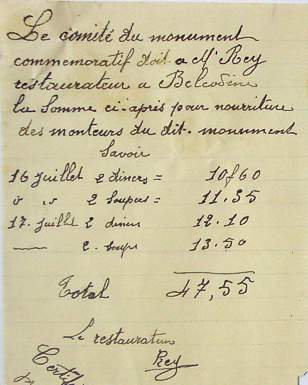 Le comité du monument
commemoratif doit a Mr Rey
restaurateur a Belcodène
la somme ci-après pour nourriture
des monteurs du dit. monument
Savoir
16 juillet 2 diners = 10f60
" " 2 soupers = 11.35
17. juillet 2 diners 12.10
— 2. soups 13.50
Total 47,55
Le restaurateur
Rey